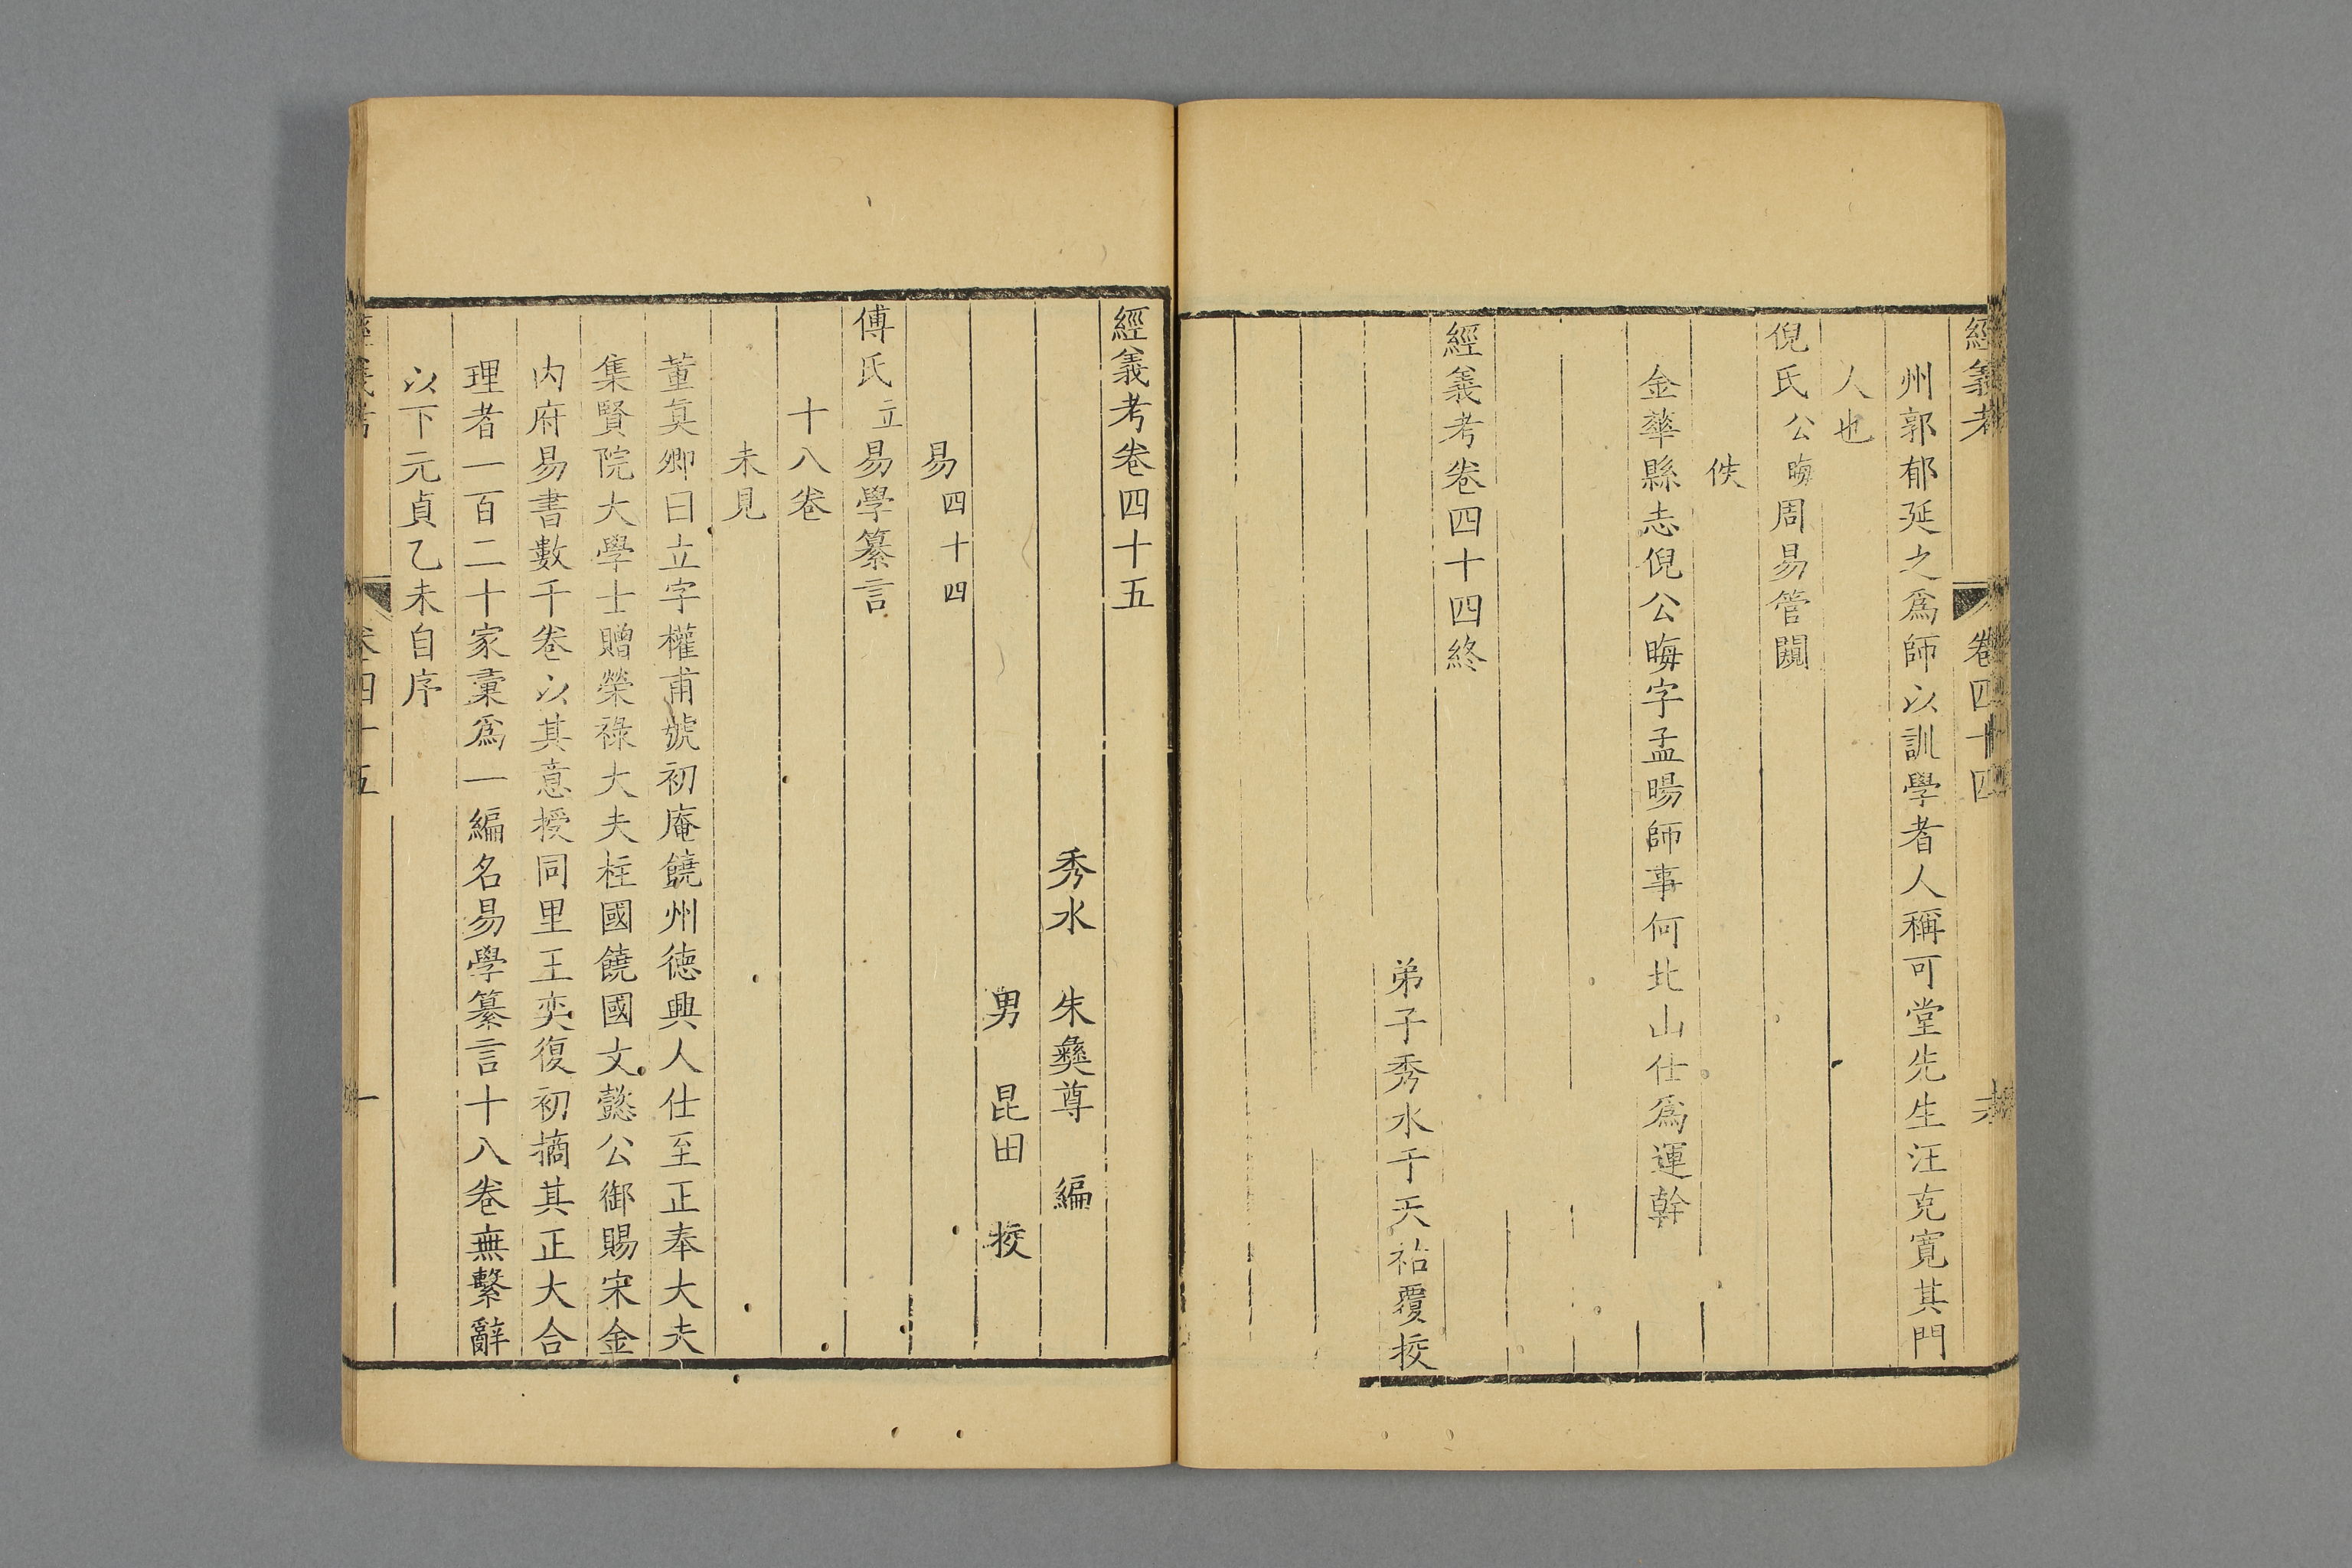 經義考
卷四十四
州郭郁延之爲師以訓學者人稱可堂先生汪克寬其門
人也
倪氏公晦周易管闚
佚
金華縣志倪公晦字孟暘師事何北山仕爲運幹
經義考卷四十四終
弟子秀水于天祐覆挍
經義考卷四十五
秀水 朱彝尊 編
男 昆田 挍
易四十四
傅氏立易學纂言
十八卷
未見
董真卿曰立字權甫號初庵饒州德興人仕至正奉大夫
集賢院大學士贈榮祿大夫柱國饒國文懿公御賜宋金
内府易書數千卷以其意授同里王奕復初摘其正大合
理者一百二十家彙爲一編名易學纂言十八卷無繫辭
以下元貞乙未自序
經義考
卷四十五
一